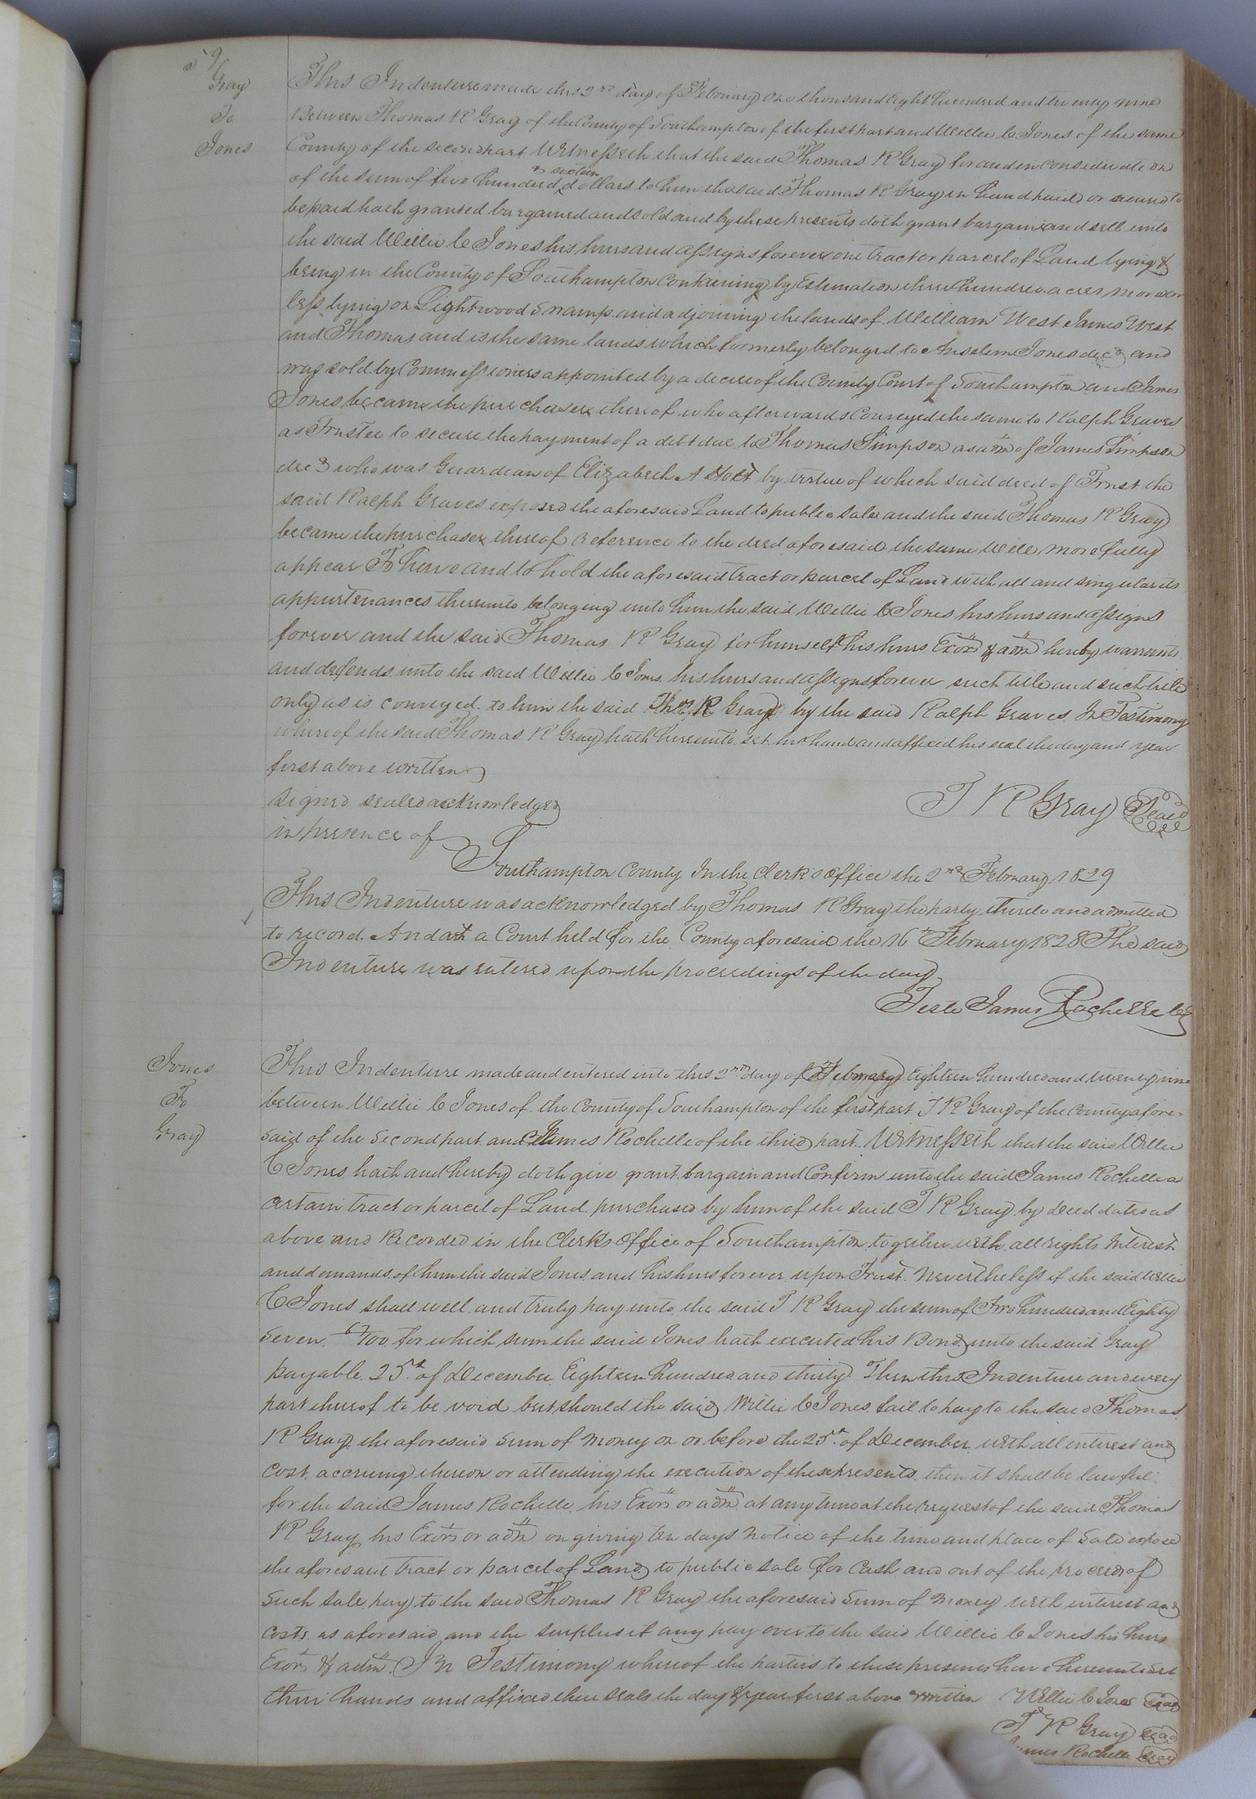 Gray
To
Jones
This Indenture made this 2nd day of February One thousand Eight hundred and twenty nine
Between Thomas R Gray of the County of Southampton of the first part and Willie C Jones of the same
County of the second part Witnesseth that the said Thomas R Gray for and in consideration
of the sum of five hundred & sixteen dollars to him the said Thomas R Gray in hand paid or secured to
be paid hath granted bargained and sold and by these presents doth grant bargain and sell unto
the said Willie C Jones his heirs and assigns forever one tract or parcel of Land lying &
being in the County of Southampton Containing by Estimation three hundred acres more or
less lying on Lightwood Swamp and adjoining the lands of William West James West
and Thomas and is the same lands which formerly belonged to Anselem Jones decd and
was sold by Commissioners appointed by a decree of the County Court of Southampton and James
Jones became the purchaser thereof who afterwards Conveyed the same to Ralph Graves
as Trustee to secure the payment of a debt due to Thomas Simpson as adm of James Simpson
decd who was Guardian of Elizabeth A Holt by virtue of which said deed of Trust the
said Ralph Graves exposed the aforesaid Land to public sale and the said Thomas R Gray
became the purchaser thereof reference to the deed aforesaid the same will more fully
appear To have and to hold the aforesaid tract or parcel of Land with all and singular its
appurtenances thereunto belonging unto him the said Willie C Jones his heirs and assigns
forever and the said Thomas R Gray for himself his heirs Exors & adm hereby warrants
and defends unto the said Willie C Jones his heirs and assigns forever such title and such title
only as is conveyed to him the said Thos. R Gray by the said Ralph Graves In Testimony
whereof the said Thomas R Gray hath hereunto set his hand and affixed his seal the day and year
first above written
Signed sealed acknowledged
T R Gray Seal
in presence of
Southampton County In the Clerk's Office the 2nd February 1829
This Indenture was acknowledged by Thomas R Gray the party thereto and admitted
to record. And at a Court held for the County aforesaid the 16th February 1828 The said
Indenture was entered upon the proceedings of the day
Teste James Rochelle
Jones
To
Gray
This Indenture made and entered into this 2nd day of February Eighteen hundred and twenty nine
between Willie C Jones of the County of Southampton of the first part T R Gray of the County afore-
said of the Second part and James Rochelle of the third part Witnesseth that the said Willie
C Jones hath and hereby doth give grant bargain and Confirm unto the said James Rochelle a
certain tract or parcel of Land purchased by him of the said T R Gray by deed dated as
above and Recorded in the Clerks Office of Southampton together with all rights Interest
and demands of him the said Jones and his heirs forever upon Trust Nevertheless if the said Willie
C Jones shall well and truly pay unto the said T R Gray the sum of Two hundred and Eighty
Seven for which sum the said Jones hath executed his Bond unto the said Gray
payable 25th of December Eighteen hundred and thirty Then this Indenture and every
part thereof to be void but should the said Willie C Jones fail to pay to the said Thomas
R Gray the aforesaid Sum of Money on or before the 25th of December with all interest and
Cost accruing thereon or attending the execution of these presents then it shall be lawful
for the said James Rochelle his Exors or adm at any time at the request of the said Thomas
R Gray his Exors or adm on giving ten days notice of the time and place of Sale expose
the aforesaid tract or parcel of Land to public sale for Cash and out of the proceed of
Such sale pay to the said Thomas R Gray the aforesaid Sum of Money with interest and
Costs as aforesaid and the surplus if any pay over to the said Willie C Jones his heirs
Exors & adm. In Testimony whereof the parties to these presents have hereunto set
their hands and affixed their seals the day & year first above written Willie C Jones Seal
T R Gray Seal
James Rochelle Seal